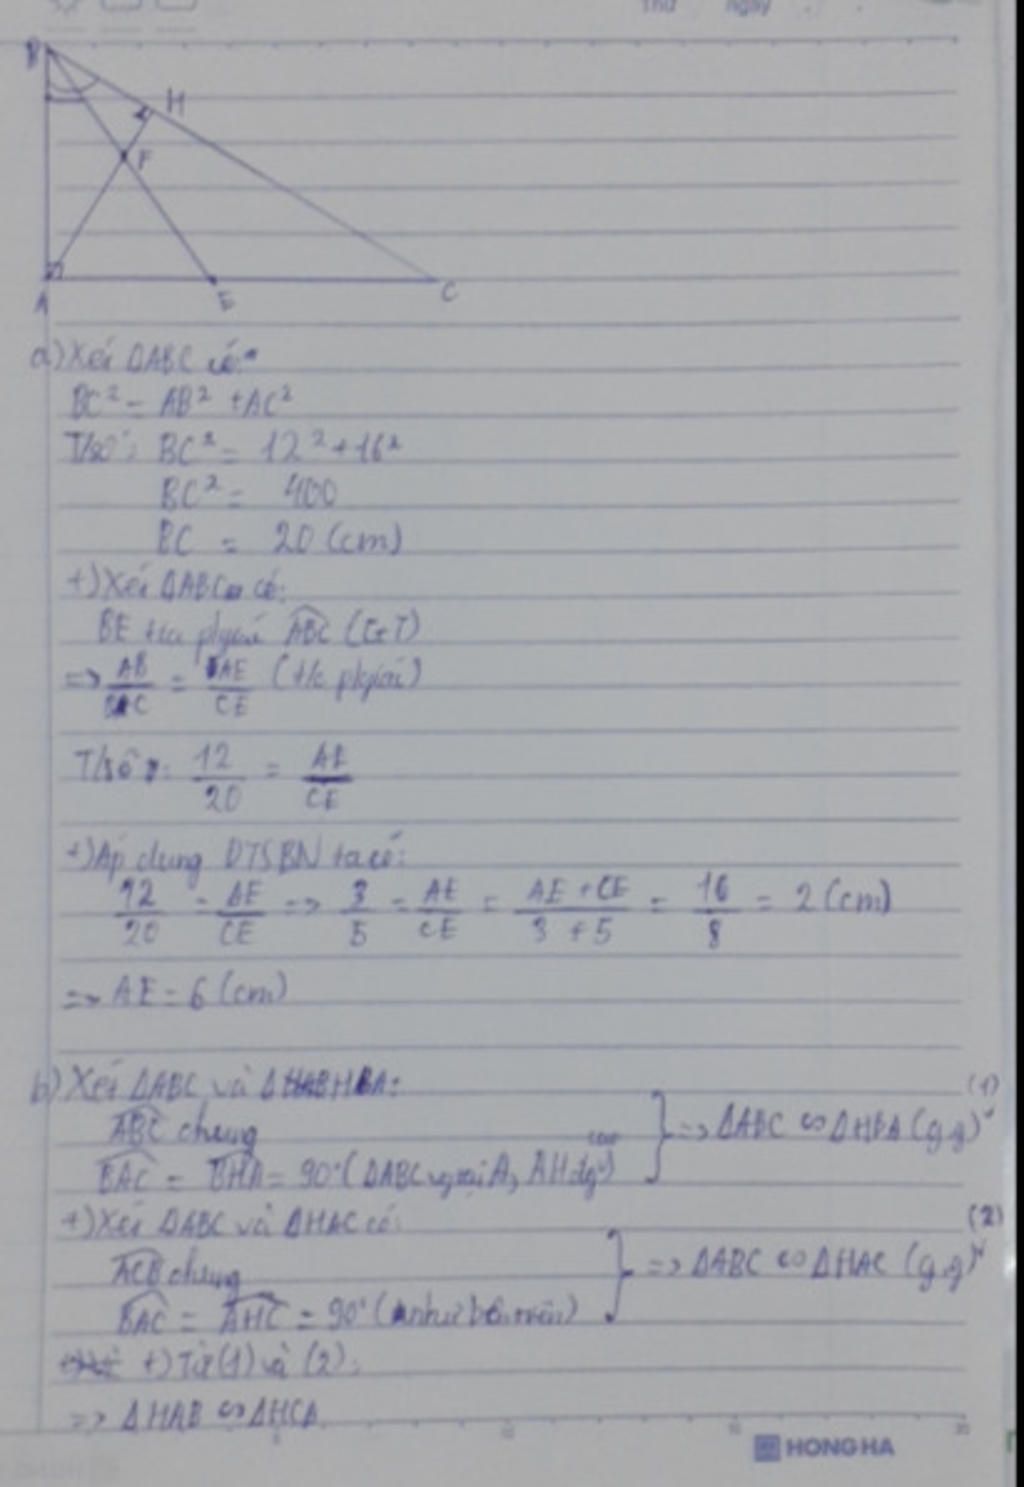 Thứ ngày
B
H
F
A E C
a) Xét ΔABC có:
BC² = AB² + AC²
T/số: BC² = 12² + 16²
BC² = 400
BC = 20 (cm)
+) Xét ΔABC có:
BE tia p/giác ABC (GT)
=> AB/BC = AE/CE (t/c p/giác)
T/số: 12/20 = AE/CE
+) Áp dụng DTSBN ta có:
12/20 = AE/CE => 3/5 = AE/CE = AE + CE/3 + 5 = 16/8 = 2 (cm)
=> AE = 6 (cm)
b) Xét ΔABC và ΔHBA:
ABC chung
BAC = BHA = 90° (ΔABC vg tại A, AH đg cao) } => ΔABC ∽ ΔHBA (g.g) (1)
+) Xét ΔABC và ΔHAC có:
ACB chung
BAC = AHC = 90° (như bên trên) } => ΔABC ∽ ΔHAC (g.g) (2)
+) Từ (1) và (2):
=> ΔHAB ∽ ΔHCA
HONG HA